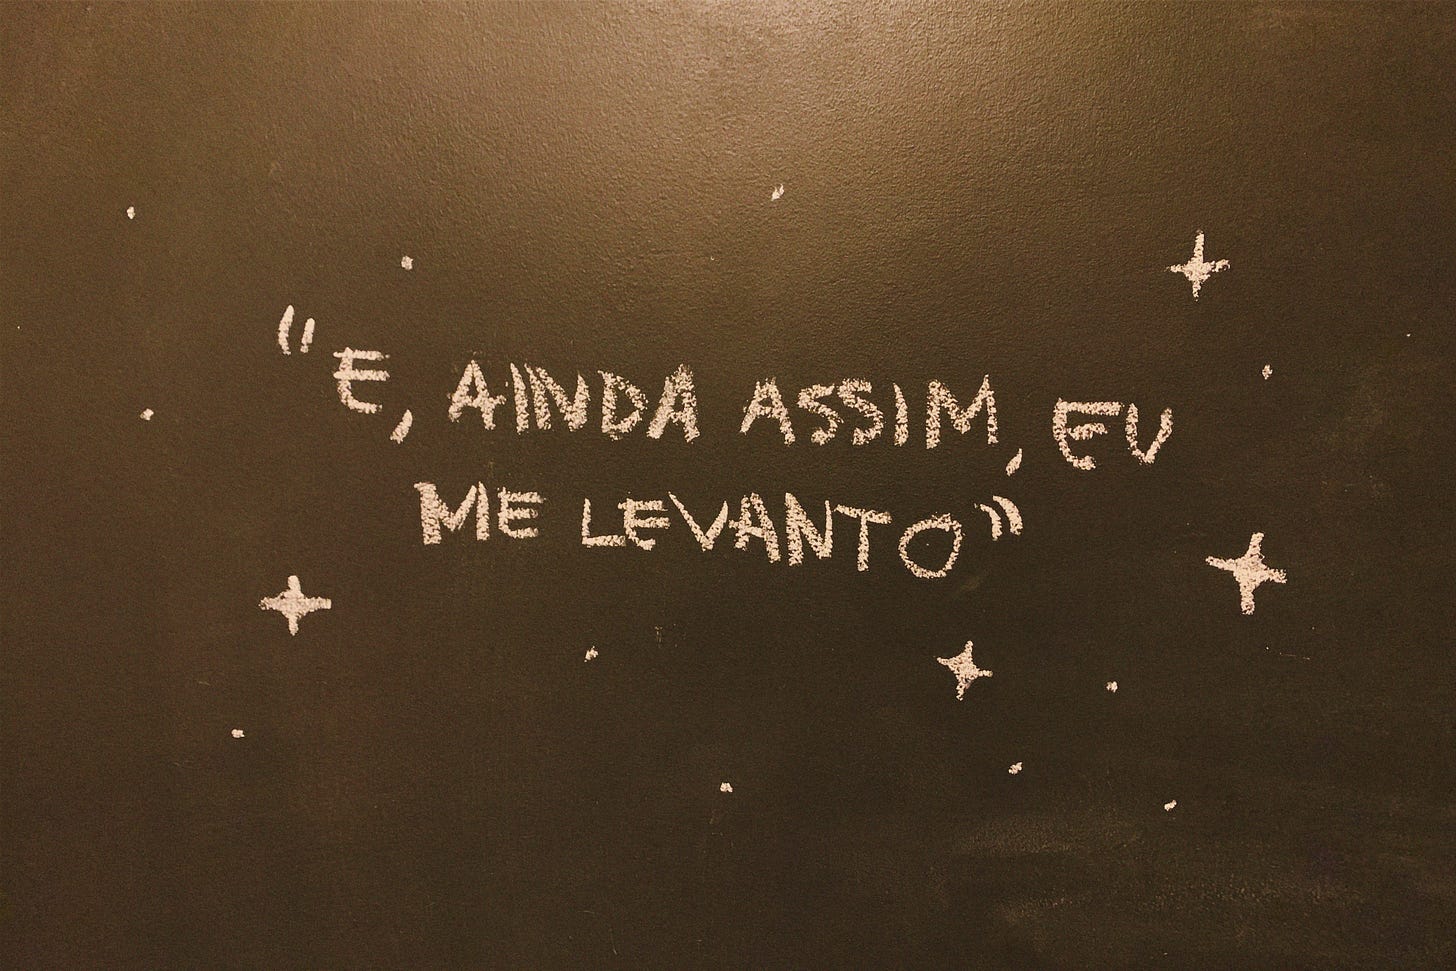 "E, AINDA ASSIM, EU
ME LEVANTO"